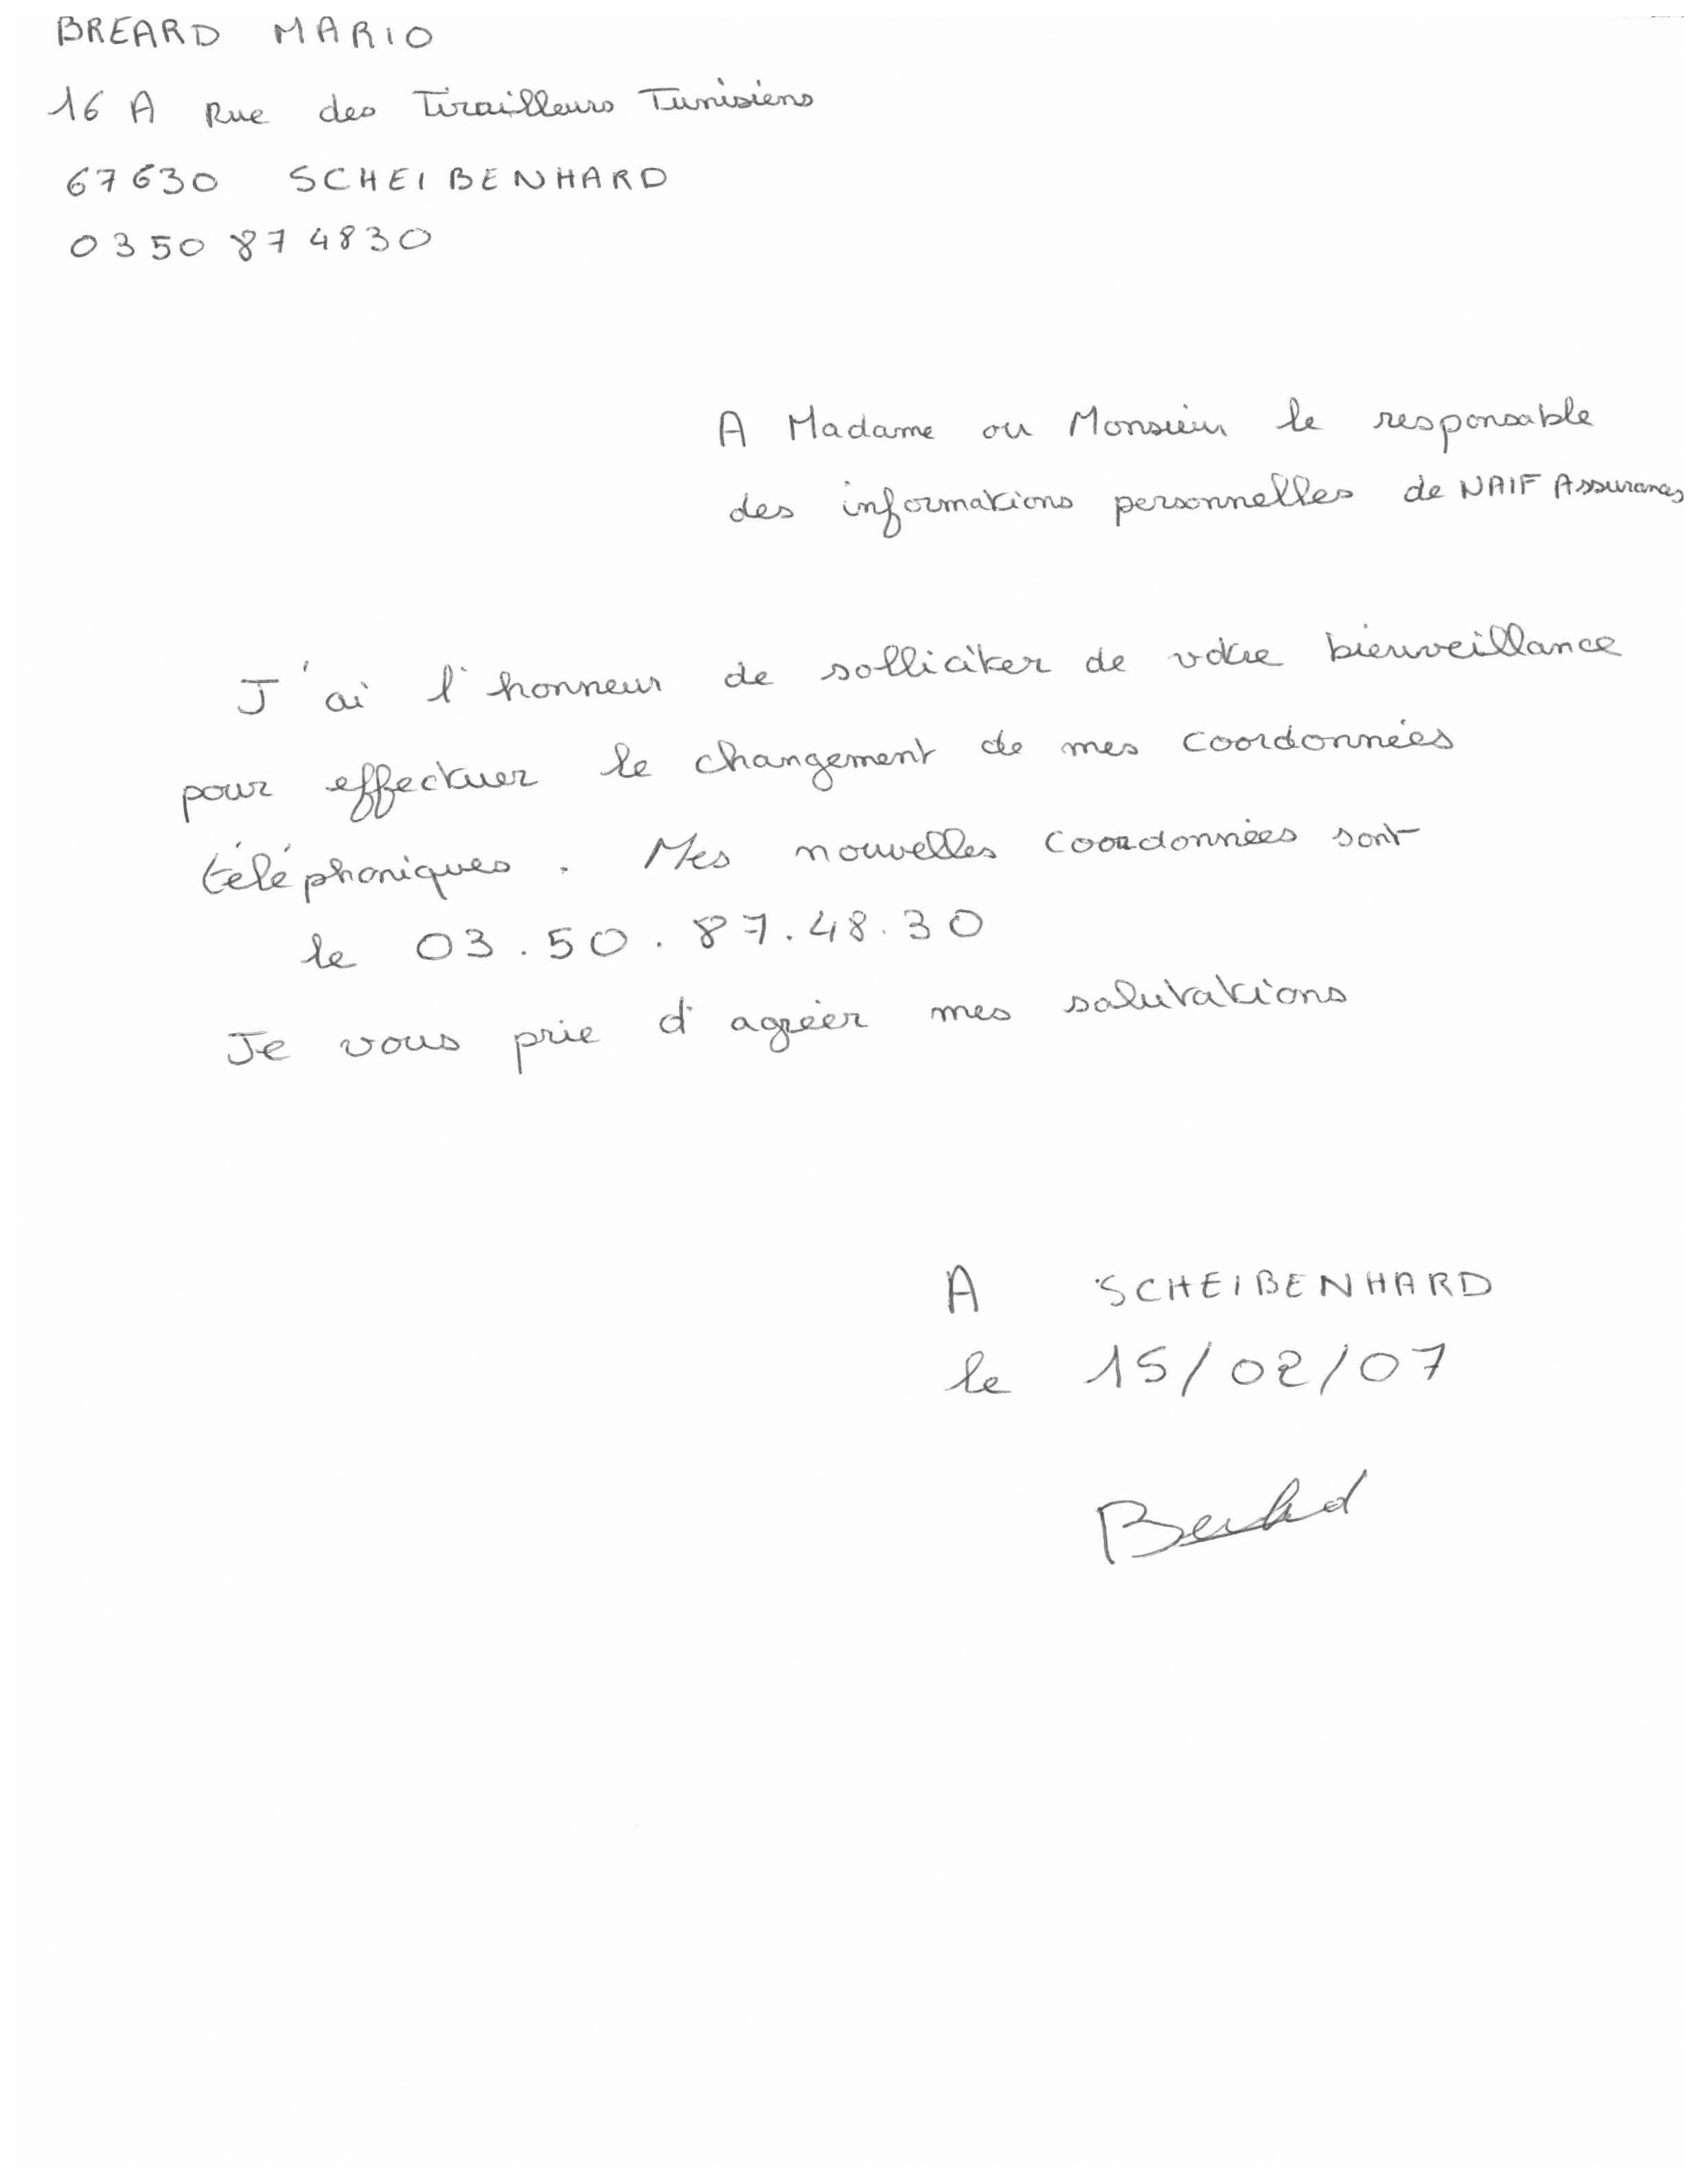 BREARD MARIO
16 A Rue des Tirailleurs Tunisiens
67630 SCHEIBENHARD
0350 874830
A Madame ou Monsieur le responsable
des informations personnelles de NAIF Assurances
J'ai l'honneur de solliciter de votre bienveillance
pour effectuer le changement de mes coordonnées
téléphoniques. Mes nouvelles coordonnées sont
le 03.50.87.48.30
Je vous prie d'agréer mes salutations
A SCHEIBENHARD
le 15/02/07